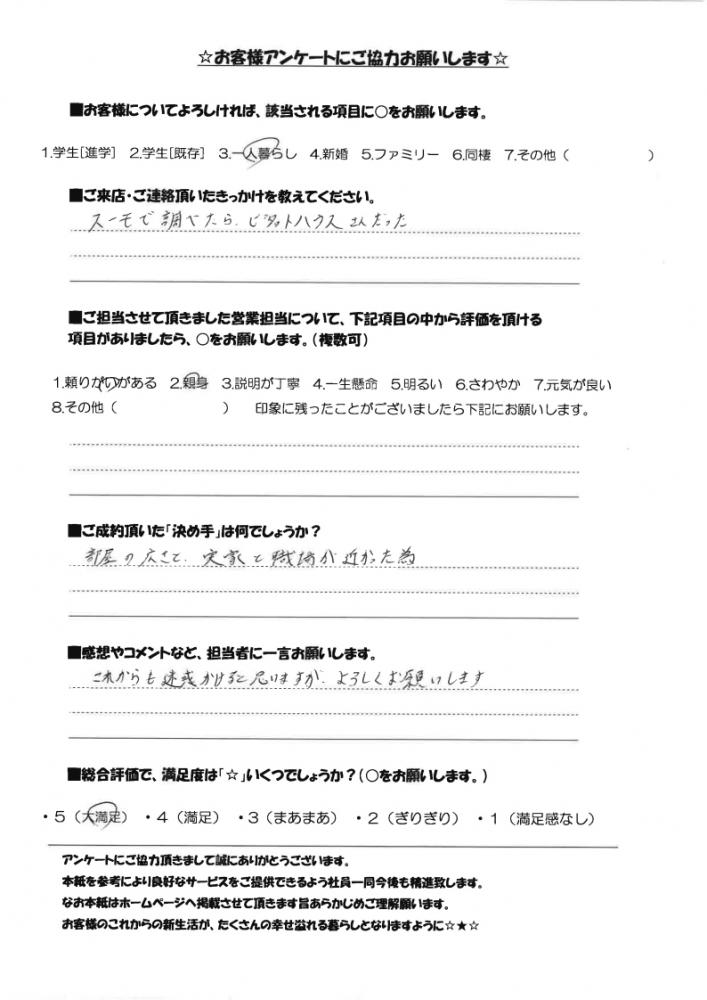 ☆お客様アンケートにご協力お願いします☆
■お客様についてよろしければ、該当される項目に○をお願いします。
1.学生[進学] 2.学生[既存] 3.一人暮らし 4.新婚 5.ファミリー 6.同棲 7.その他（ ）
■ご来店・ご連絡頂いたきっかけを教えてください。
スーモで調べたら、ピタットハウスさんだった
■ご担当させて頂きました営業担当について、下記項目の中から評価を頂ける
項目がありましたら、○をお願いします。（複数可）
1.頼りがいがある 2.親身 3.説明が丁寧 4.一生懸命 5.明るい 6.さわやか 7.元気が良い
8.その他（ ） 印象に残ったことがございましたら下記にお願いします。
■ご成約頂いた「決め手」は何でしょうか？
部屋の広さと、実家と職場が近かった為
■感想やコメントなど、担当者に一言お願いします。
これからも迷惑かけると思いますが、よろしくお願いします
■総合評価で、満足度は「☆」いくつでしょうか？（○をお願いします。）
・5（大満足） ・4（満足） ・3（まあまあ） ・2（ぎりぎり） ・1（満足感なし）
アンケートにご協力頂きまして誠にありがとうございます。
本紙を参考により良好なサービスをご提供できるよう社員一同今後も精進致します。
なお本紙はホームページへ掲載させて頂きます旨あらかじめご理解願います。
お客様のこれからの新生活が、たくさんの幸せ溢れる暮らしとなりますように☆★☆